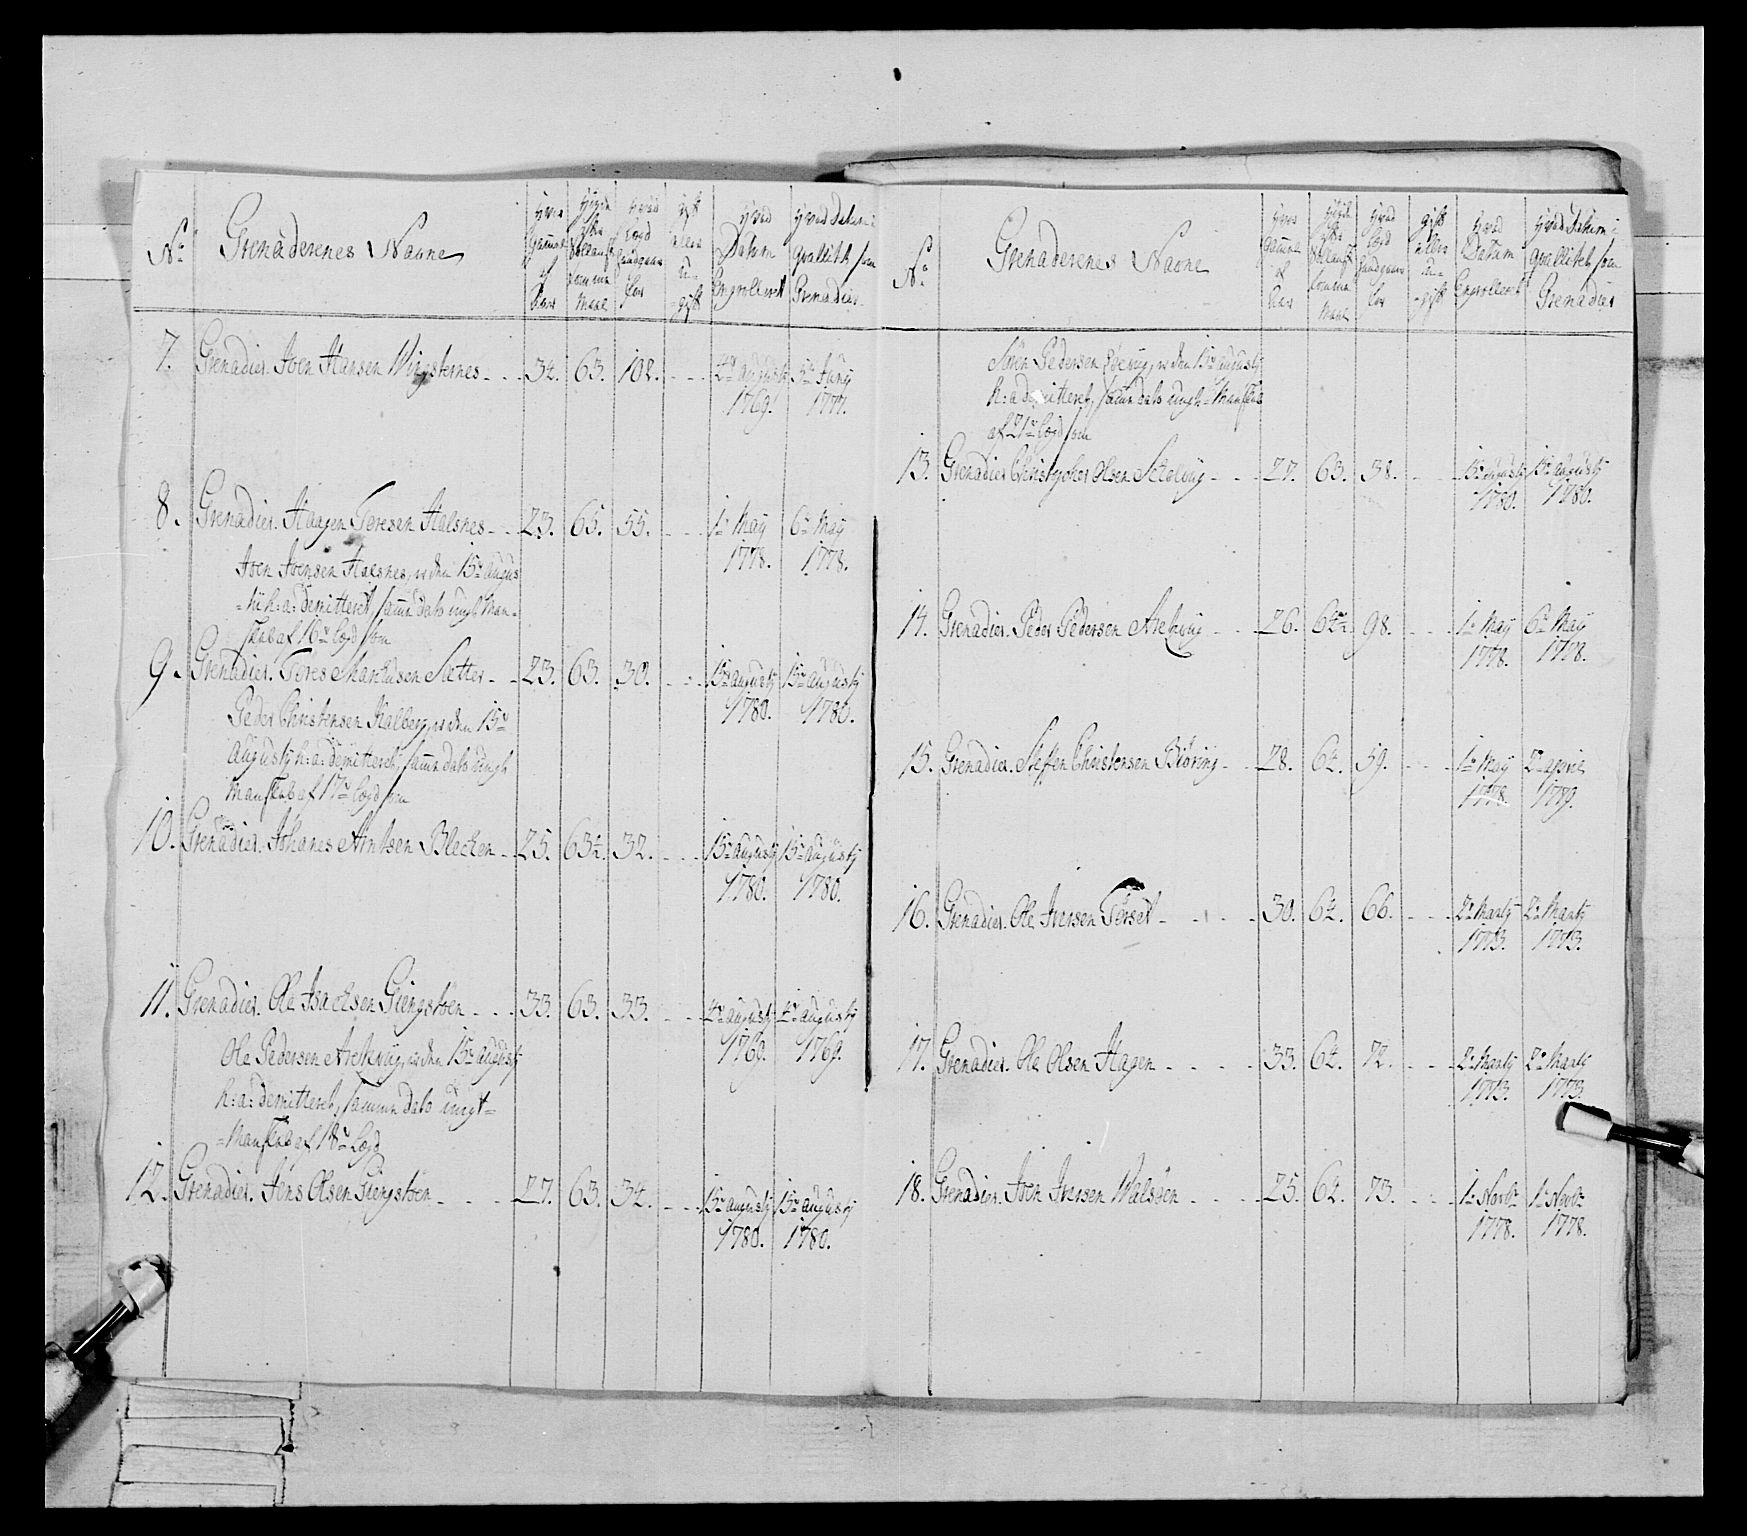 No Grenaderenes Navne
Hvor gammel af Aar
Høyde efter Sællandsk tomme Maal
Hvad Lægd Handgaar for
gift eller u=gift
Hvad Datum Engrolleret
Hvad Datum i qvallitet som Grenadier
7. Grenadier. Iven Hansen Wingsternes 34. 63. 102. 4de augusti 1769. 5te Juny 1777.
8. Grenadier. Haagen Toresen Halsnes 23. 65. 55. 1te May 1778. 6te May 1778.
Iven Ivensen Halsnes, er den 15de augus
=ti h: a: demitteret, samme dato ungt Man=
skab af 16de Lægd som
9. Grenadier. Tores Markusen Sætter 23. 63. 30. 15de augusty 1780. 15de augusty 1780.
Peder Christensen Kalberg, er den 15de
augusty h: a: demitteret, samme dato ungt
Manskab af 17de Lægd som
10. Grenadier. Johanes Arntsen Blecken 25. 63½. 32. 15de augusty 1780. 15de augusty 1780.
11. Grenadier. Ole Isachsen Giengstøen 33. 63. 33. 4de augusty 1769. 4de augusty 1769.
Ole Pedersen Archvig, er den 15de augusty
h: a: demitteret, samme dato ungt=
=Manskab af 18de Lægd
12. Grenadier. Jens Olsen Giengstøen 27. 63. 34. 15de augusty 1780. 15de augusty 1780.
No Grenaderenes Navne
Hvor gammel af Aar
Høyde efter Sællandsk tomme Maal
Hvad Lægd Handgaar for
gift eller u=gift
Hvad Datum Engrolleret
Hvad Datum i qvallitet som Grenadier
Sören Pedersen er den 15de augusty
h: a demitteret, samme dato ungt= Manskab
af 21de Lægd som
13. Grenadier Christopher Olsen 27. 63. 38. 15de augusty 1780. 15de augusty 1780.
14. Grenadier. Peder Pedersen Archvig 26. 64½ 98. 1te May 1778. 6te May 1778.
15. Grenadier. Steffen Christensen Biöring 28. 64. 59. 1te May 1778. 2de april 1779.
16. Grenadier. Ole Iversen Torset 30. 64. 66. 2de Marty 1773. 2de Marty 1773.
17. Grenadier. Ole Olsen Hagen 33. 64. 72. 2de Marty 1773. 2de Marty 1773.
18. Grenadier. Iven Iversen Walsöen 25. 64. 73. 1te Novbr 1778. 1te Novbr 1778.